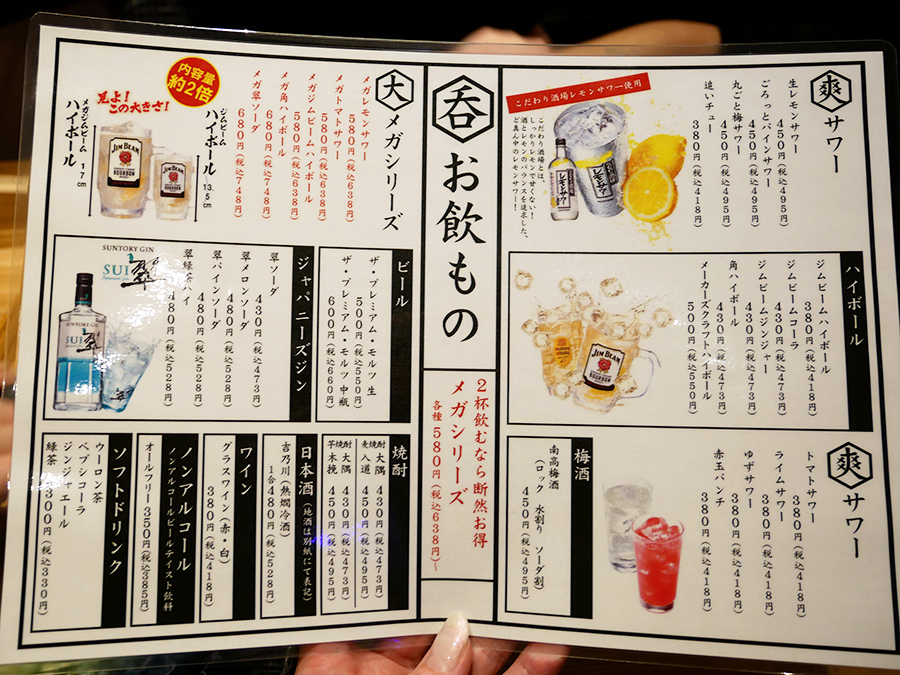 爽 サワー
生レモンサワー
450円(税込495円)
ごろっとパインサワー
450円(税込495円)
丸ごと梅サワー
450円(税込495円)
追いチュー
380円(税込418円)
こだわり酒場レモンサワー使用
こだわり酒場とは、
しっかりレモンで甘くない！
酒とレモンのバランスを追求した、
ど真ん中のレモンサワー！
ハイボール
ジムビームハイボール
380円(税込418円)
ジムビームコーラ
430円(税込473円)
ジムビームジンジャー
430円(税込473円)
角ハイボール
430円(税込473円)
メーカーズクラフトハイボール
500円(税込550円)
JIM BEAM
BOURBON
爽 サワー
トマトサワー
380円(税込418円)
ライムサワー
380円(税込418円)
ゆずサワー
380円(税込418円)
赤玉パンチ
380円(税込418円)
梅酒
南高梅酒
(ロック 水割り ソーダ割)
450円(税込495円)
呑 お飲もの
2杯飲むなら断然お得
メガシリーズ
各種580円(税込638円)〜
大 メガシリーズ
メガレモンサワー
580円(税込638円)
メガトマトサワー
580円(税込638円)
メガジムビームハイボール
580円(税込638円)
メガ角ハイボール
680円(税込748円)
メガ翠ソーダ
680円(税込748円)
内容量
約2倍
見よ！
この大きさ！
ジムビーム
ハイボール
13.5cm
メガジムビーム
ハイボール
17cm
JIM BEAM
BOURBON
JIM BEAM
ビール
ザ・プレミアム・モルツ 生
500円(税込550円)
ザ・プレミアム・モルツ 中瓶
600円(税込660円)
ジャパニーズジン
翠ソーダ
430円(税込473円)
翠メロンソーダ
480円(税込528円)
翠パインソーダ
480円(税込528円)
翠緑茶ハイ
480円(税込528円)
SUNTORY GIN
SUI 翠
SUNTORY GIN
SUI 翠
焼酎
麦焼酎 大隅 430円(税込473円)
入道 450円(税込495円)
芋焼酎 大隅 430円(税込473円)
木挽 450円(税込495円)
日本酒(地酒は別紙にて表記)
吉乃川(熱燗冷酒)
1合480円(税込528円)
ワイン
グラスワイン(赤・白)
380円(税込418円)
ノンアルコール
ノンアルコールビールテイスト飲料
オールフリー 350円(税込385円)
ソフトドリンク
ウーロン茶
ペプシコーラ
ジンジャエール
緑茶 各300円(税込330円)